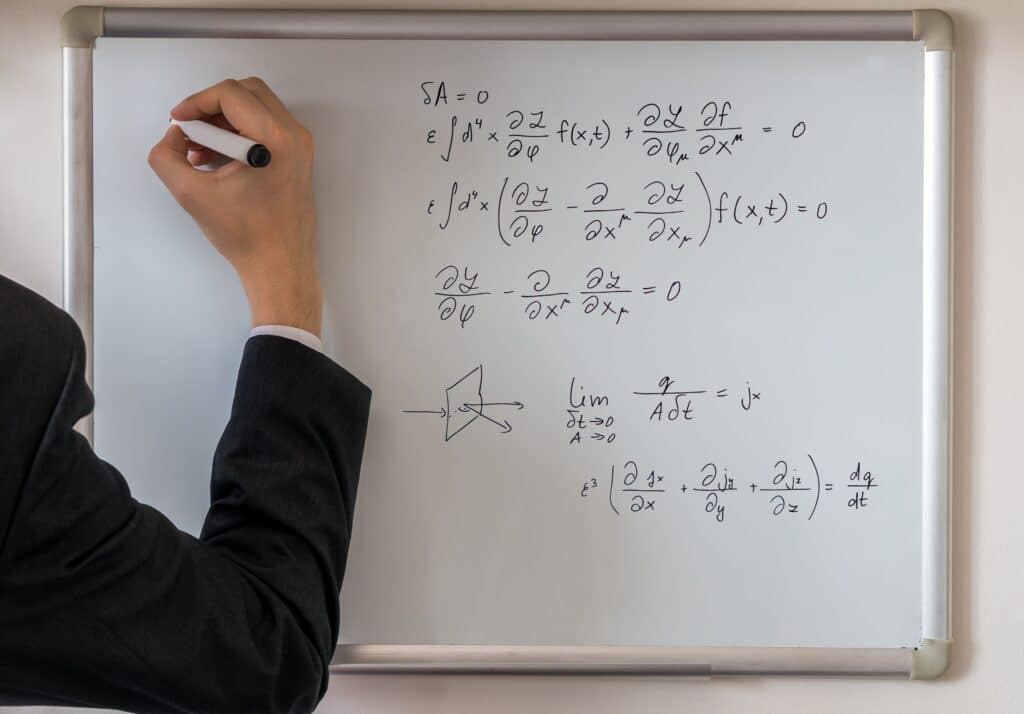 δA = 0
ε ∫ d⁴x ∂ℒ/∂φ f(x,t) + ∂ℒ/∂φ_μ ∂f/∂x^μ = 0
ε ∫ d⁴x (∂ℒ/∂φ - ∂/∂x^μ ∂ℒ/∂x_μ) f(x,t) = 0
∂ℒ/∂φ - ∂/∂x^μ ∂ℒ/∂x_μ = 0
lim δt→0 A→0 q/(Aδt) = jₓ
ε³ (∂jₓ/∂x + ∂j_y/∂y + ∂j_z/∂z) = dq/dt